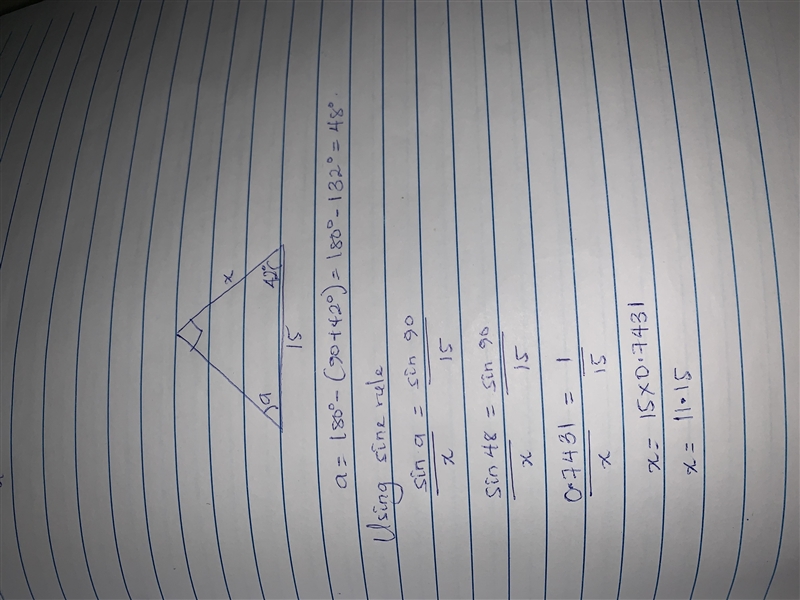 x
a
42°
15
a = 180° - (90+42°) = 180° - 132° = 48°.
Using sine rule
sin a / x = sin 90 / 15
sin 48 / x = sin 90 / 15
0.7431 / x = 1 / 15
x = 15 x 0.7431
x = 11.15